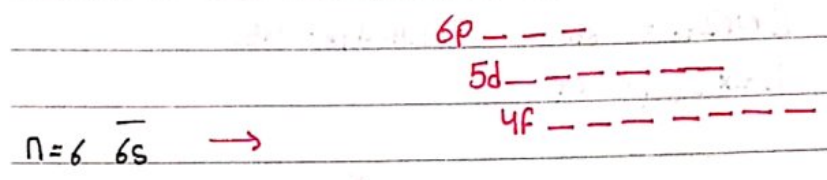 6p _ _ _
5d _ _ _ _ _
4f _ _ _ _ _ _ _
n=6 6s →